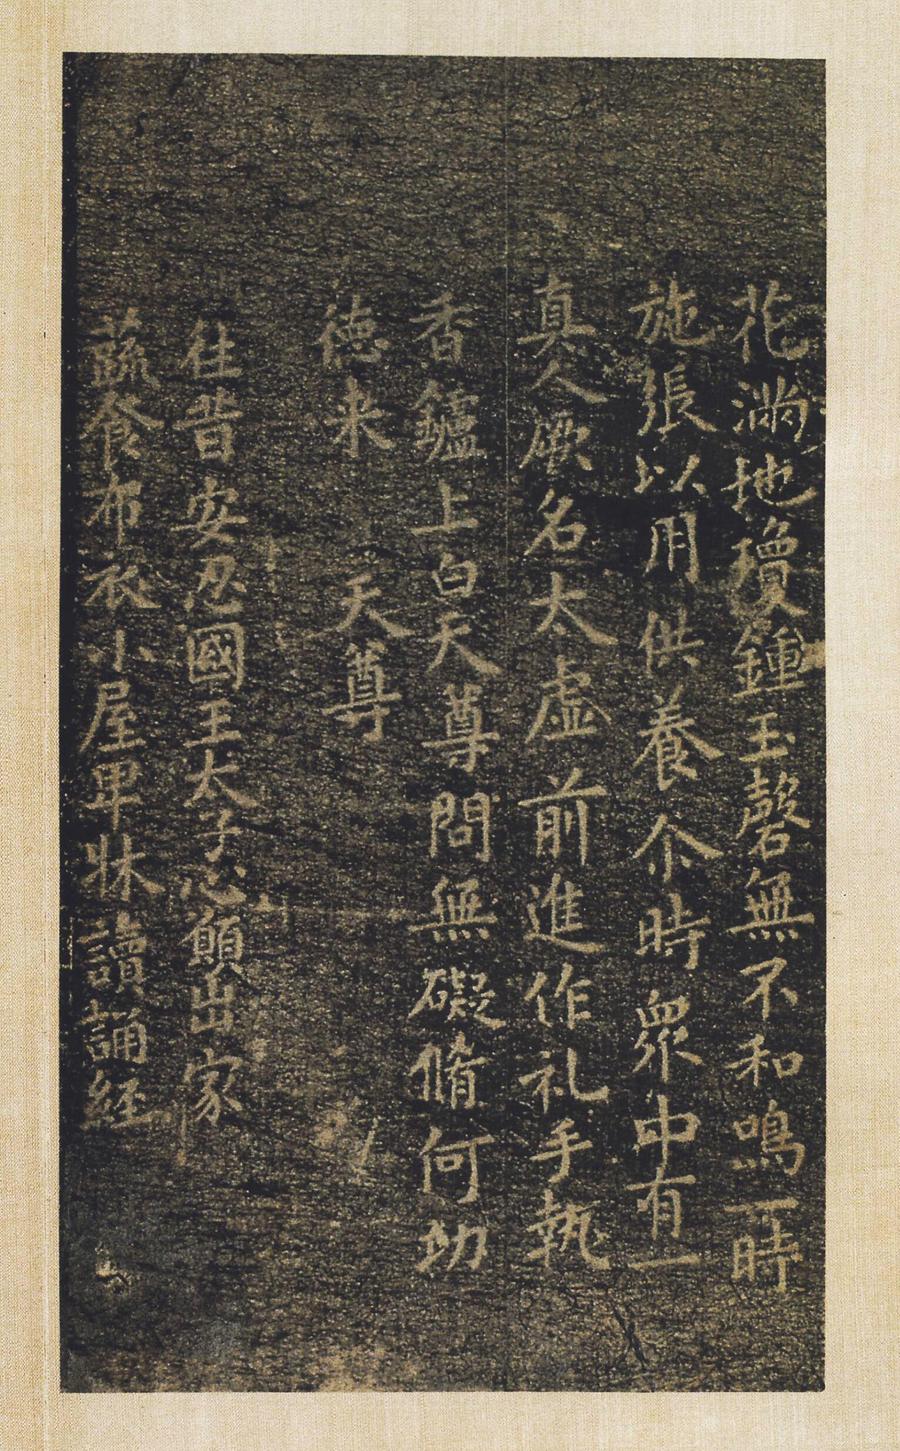 花满地瓊鍾玉磬無不和鳴一時
施張以用供養尒時衆中有一
真人厥名太虛前進作礼手執
香鑪上白天尊問無礙脩何功
德来　天尊
往昔安忍國王太子心願出家
蔬食布衣小屋卑牀讀誦經